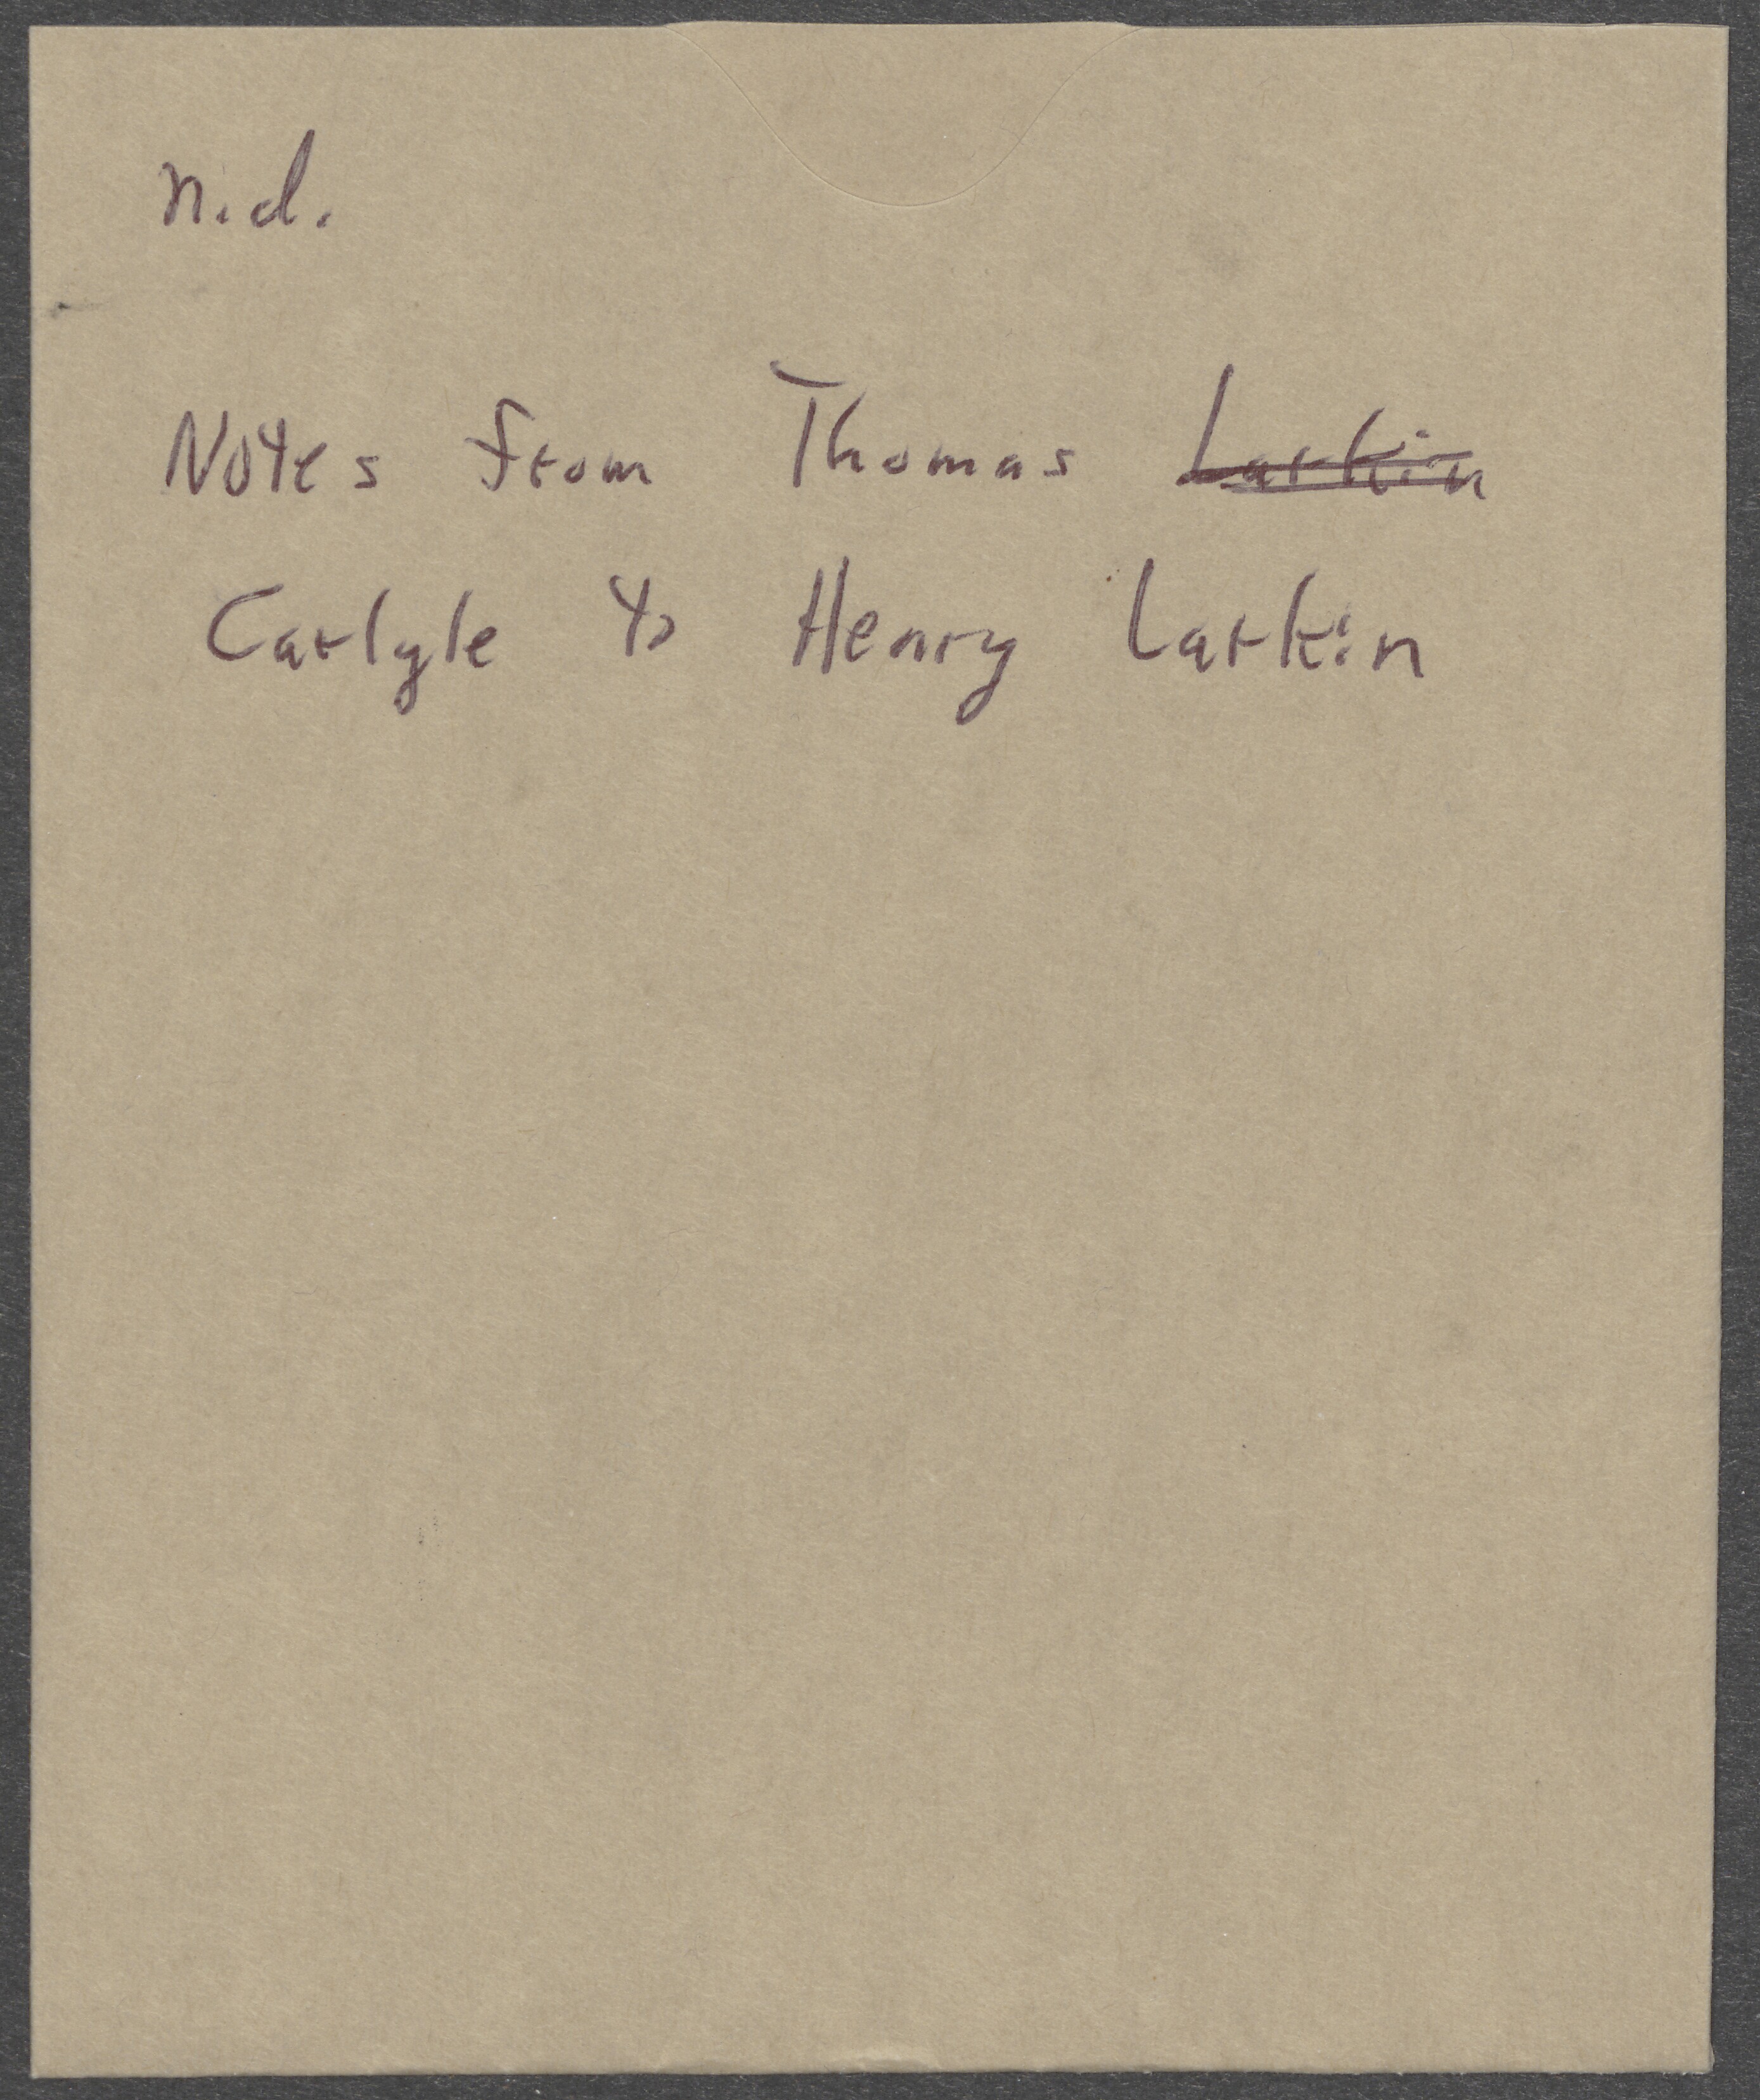 n.d.
Notes from Thomas Larkin
Carlyle to Henry Larkin